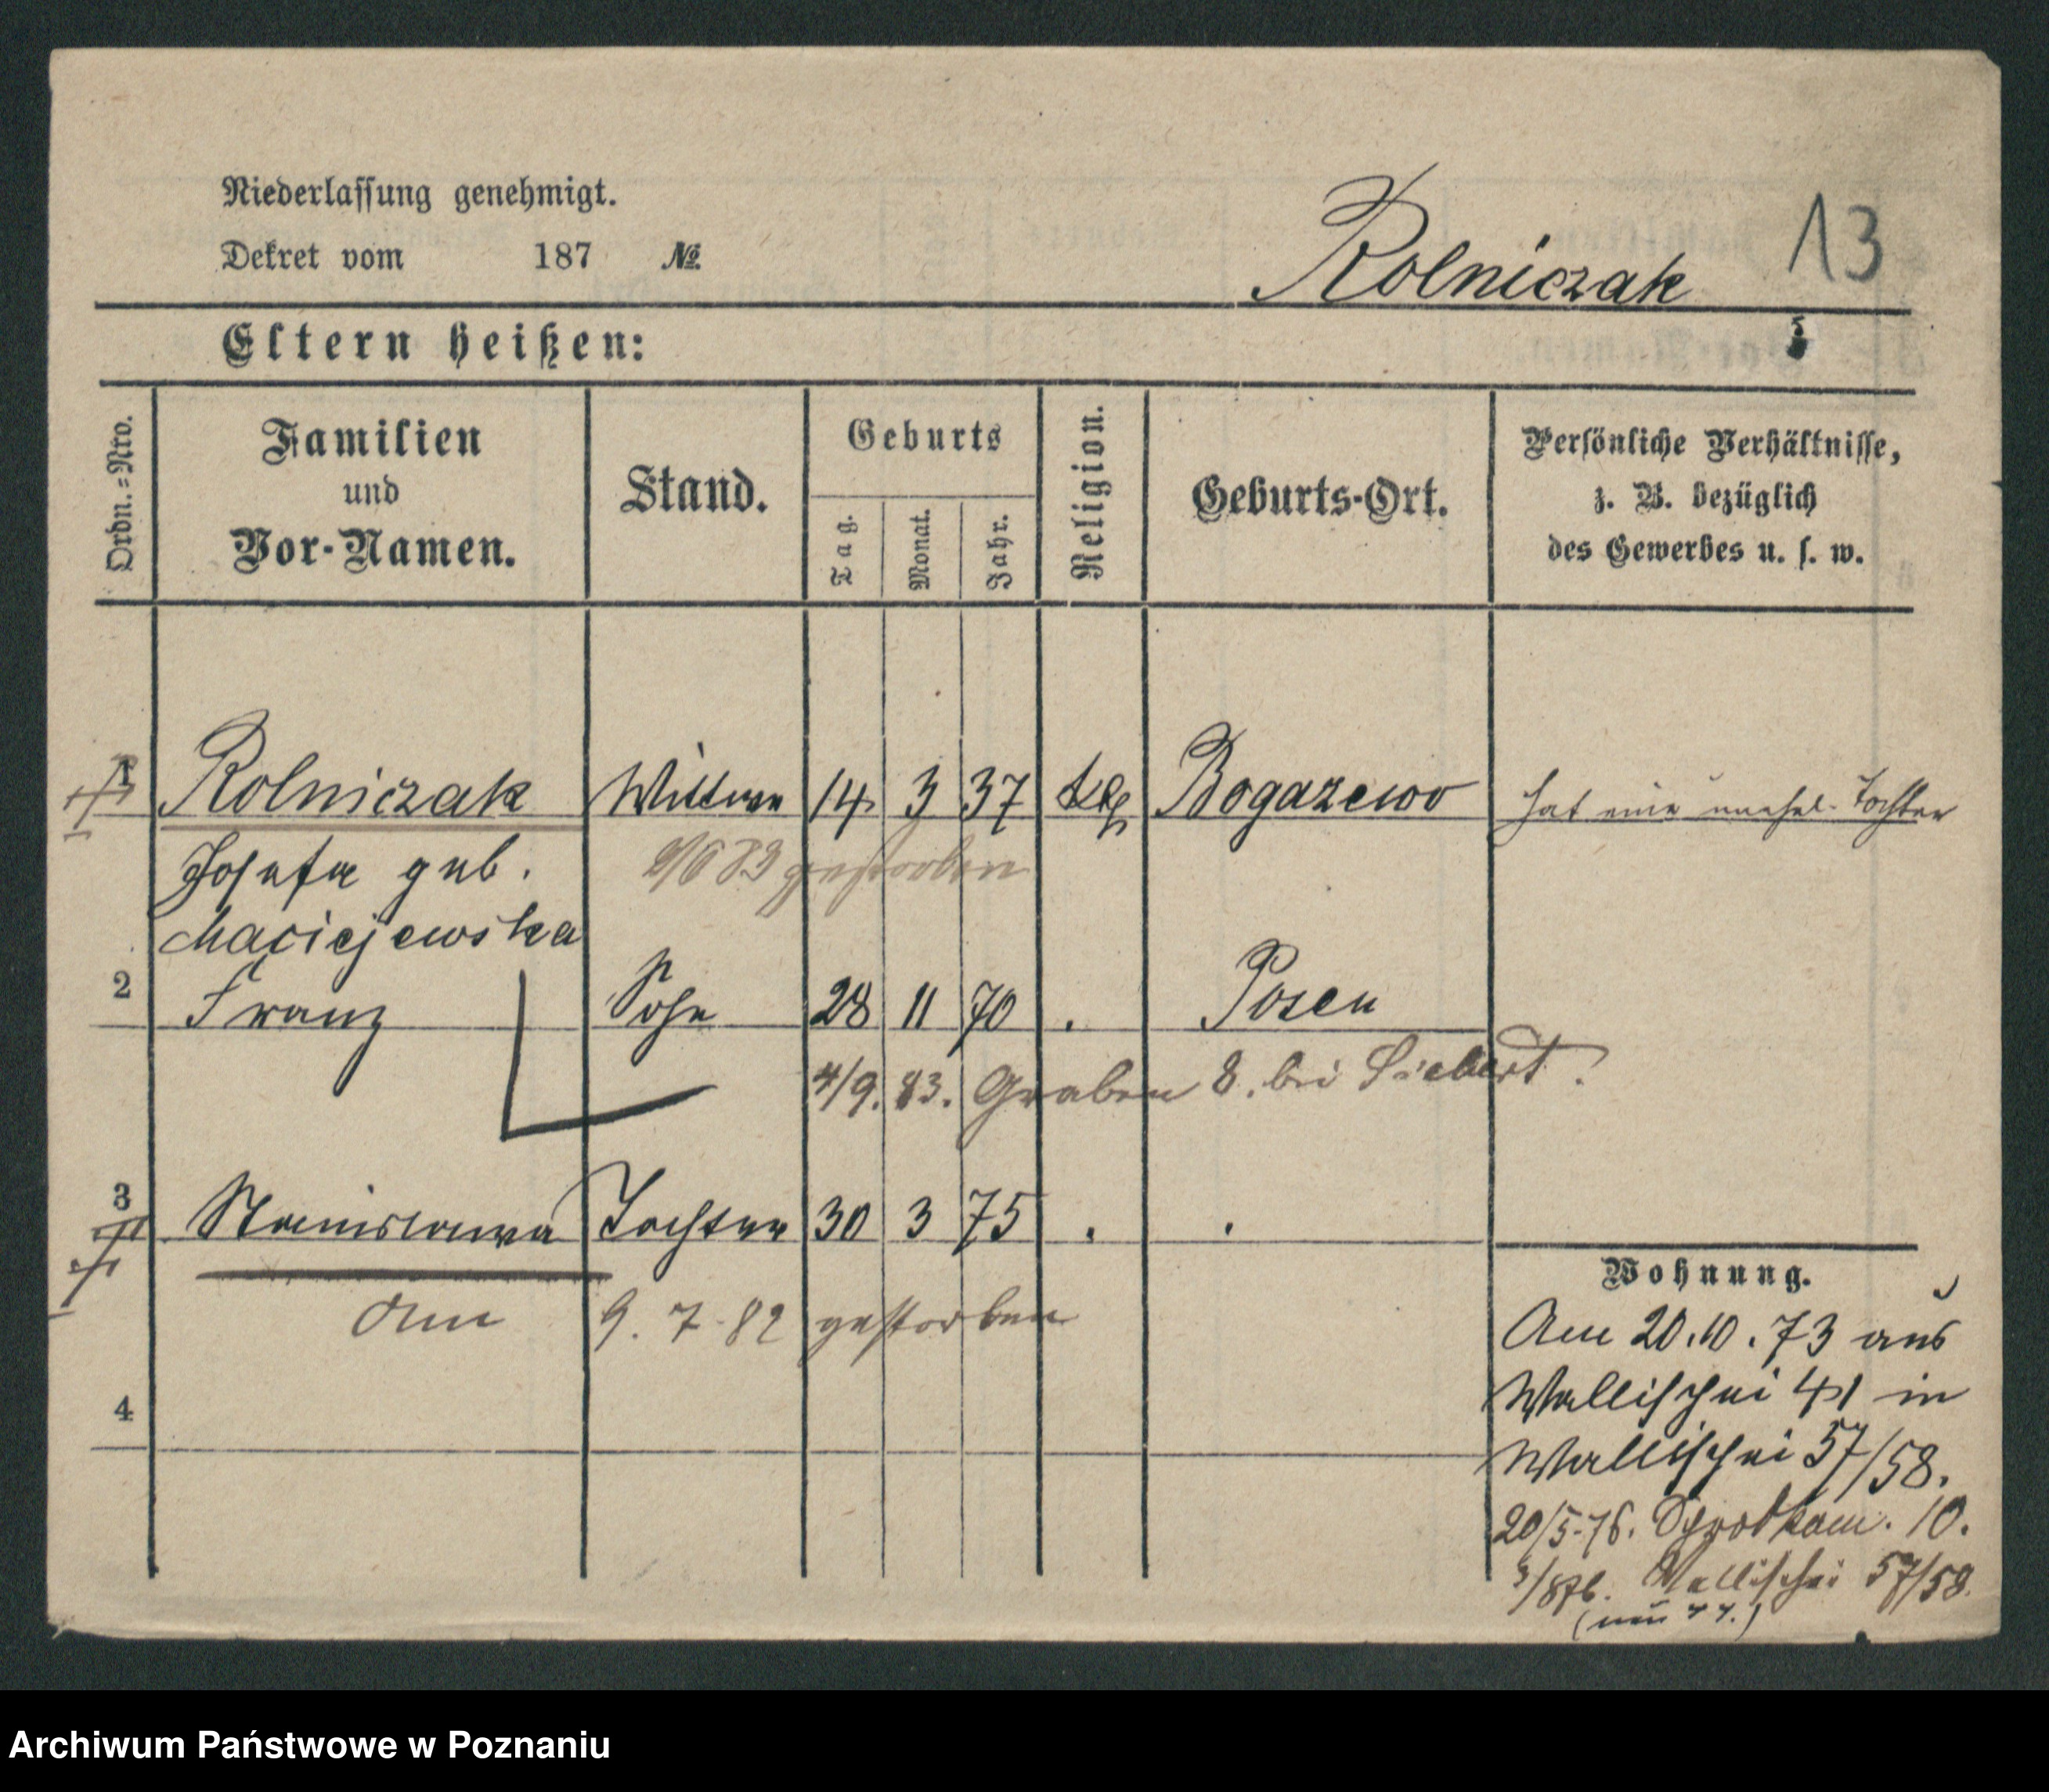 Niederlassung genehmigt.
Dekret vom 187 №
Rolniczak 13
Eltern heißen:
Ordn.-Nro.
Familien
und
Vor-Namen.
Stand.
Geburts
Tag.
Monat.
Jahr.
Religion.
Geburts-Ort.
Persönliche Verhältnisse,
z. B. bezüglich
des Gewerbes u. s. w.
1 Rolniczak Wittwe 14 3 37 Bogazewo hat eine unehel. Tochter
Josefa geb. 83 gestorben
Maciejewska
2 Franz Sohn 28 11 70 . Posen
4/9. 83. Graben 8. bei Siebert.
3 Stanislawa Tochter 30 3 75 . .
am 9. 7. 82 gestorben
4
Wohnung.
Am 20.10.73 aus
Wallischei 41 in
Wallischei 57/58.
20/5.76. 10.
Wallischei 57/58.
(neu 44.)
Archiwum Państwowe w Poznaniu